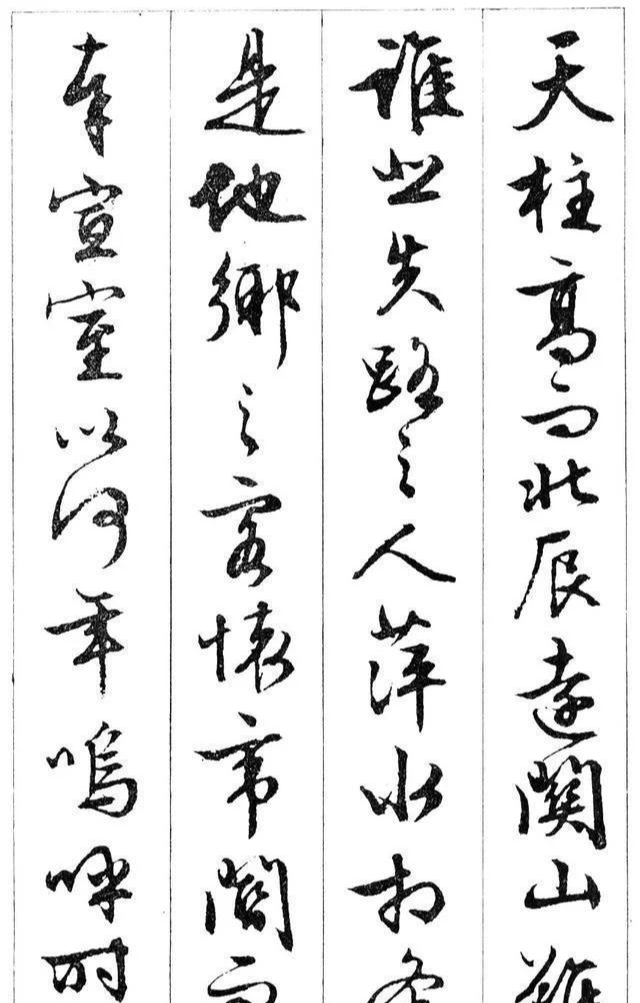 天柱高而北辰遠關山難
誰悲失路之人萍水相逢
是他鄉之客懷帝閽而
奉宣室以何年嗚呼時